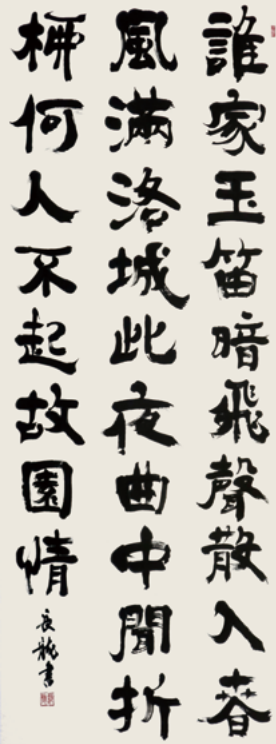 誰家玉笛暗飛聲散入春
風滿洛城此夜曲中聞折
柳何人不起故園情
長龍書